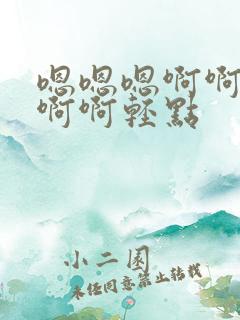 嗯嗯嗯啊啊
啊啊轻點
小二圆
未经同意禁止转载